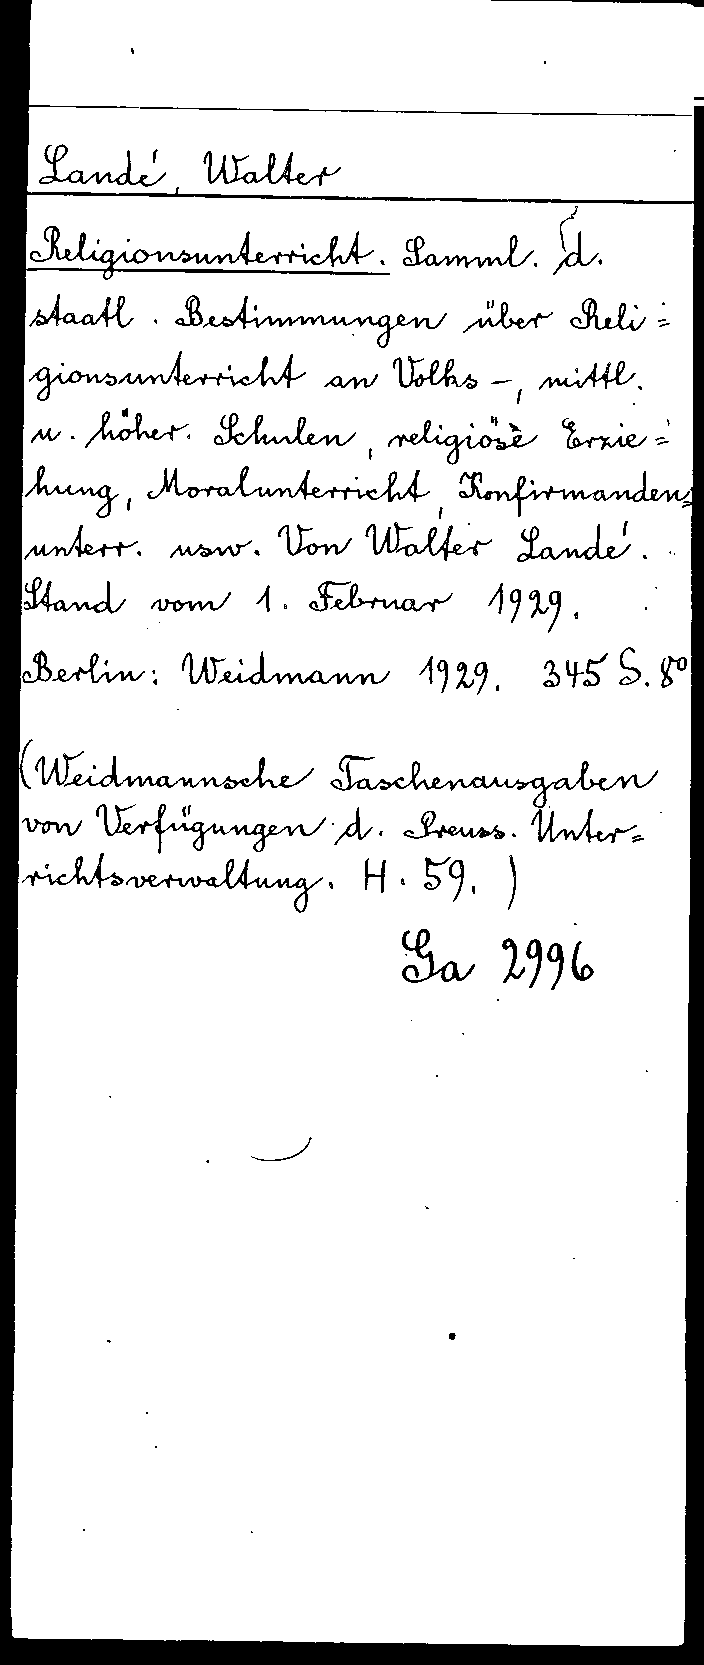 Landé, Walter
Religionsunterricht. Samml. d.
staatl. Bestimmungen über Reli=
gionsunterricht an Volks-, mittl.
u. höher. Schulen, religiöse Erzie=
hung, Moralunterricht, Konfirmanden=
unterr. usw. Von Walter Landé.
Stand vom 1. Februar 1929.
Berlin: Weidmann 1929. 345 S. 8°
(Weidmannsche Taschenausgaben
von Verfügungen d. Preuss. Unter=
richtsverwaltung. H. 59.)
Ga 2996